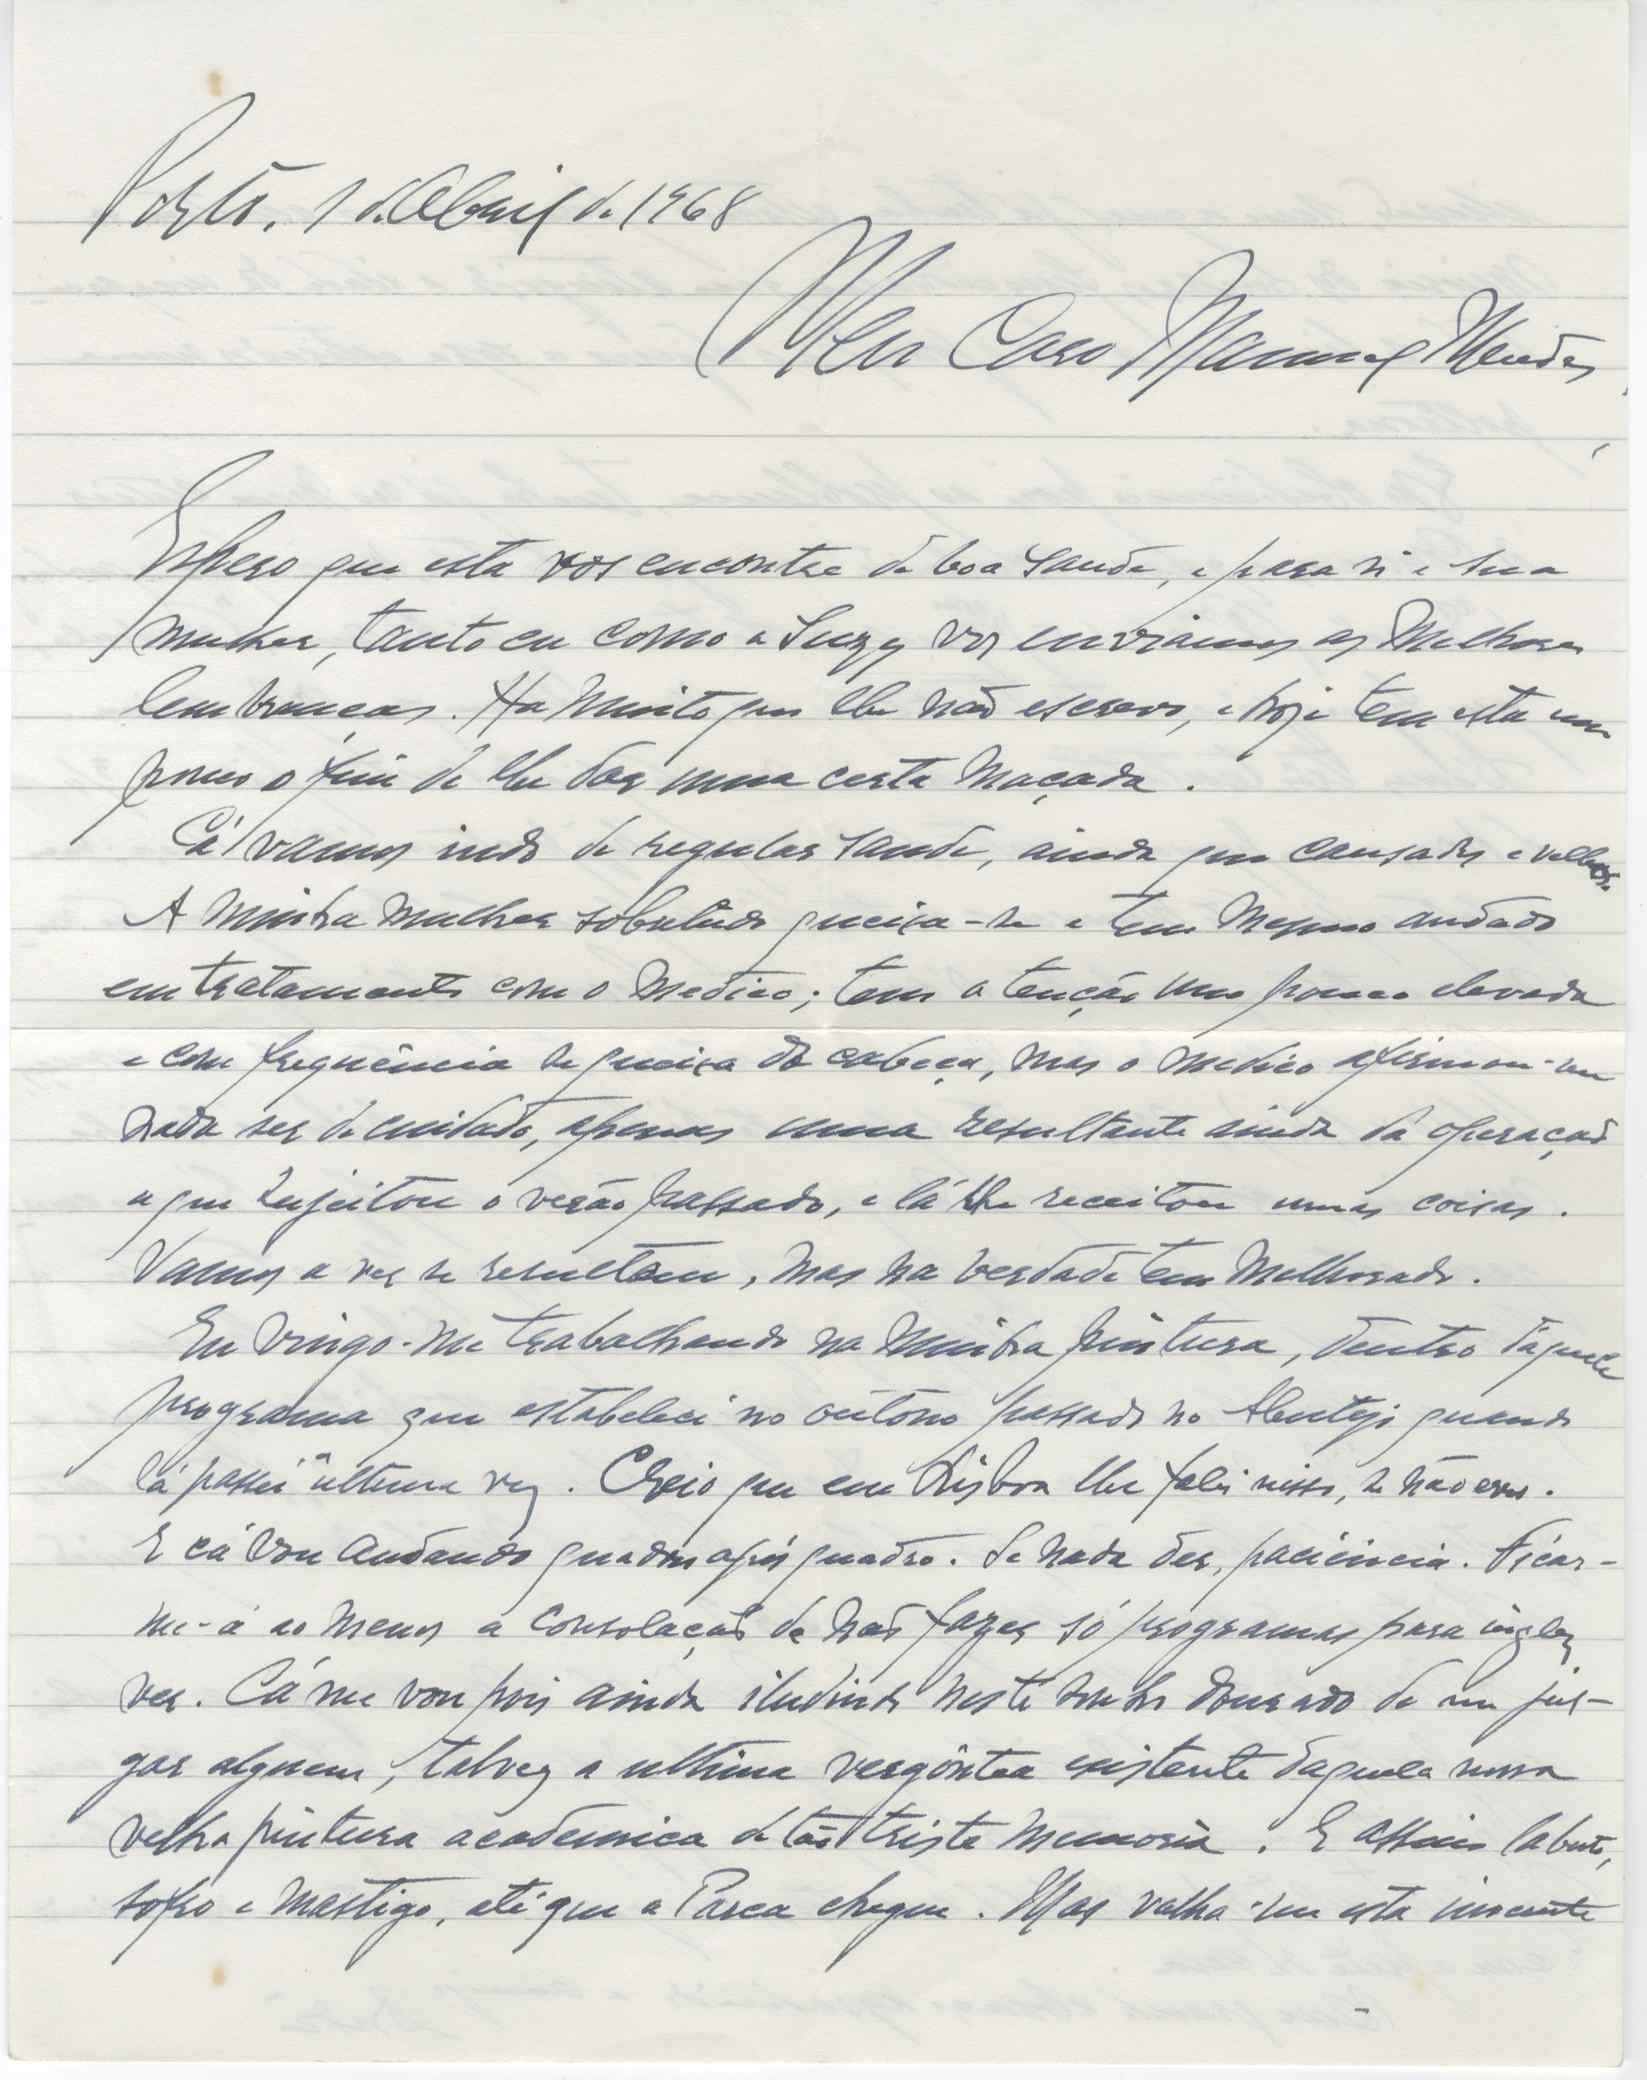 Porto, 1 d'Abril de 1968
Meu Caro Manuel Mendes,
Espero que esta vos encontre de boa saude, e para si e sua
mulher, tanto eu como a Suzy vos enviamos as Melhores
lembranças. Ha Muito que lhe não escrevo, e hoje tem esta um
pouco o fim de lhe dar uma certa Maçada.
Cá vamos indo de regular saude, ainda que cansados e velhos.
A Minha Mulher sobretudo queixa-se e tem Mesmo andado
em tratamento com o Medico; tem a tenção um pouco elevada
e com frequência se queixa da cabeça, mas o Medico afirmou-me
nada ser de cuidado, apenas uma resultante ainda da operação
a que sujeitou o verão passado, e lá lhe receitou umas coisas.
Vamos a ver se resultem, Mas na verdade tem Melhorado.
Eu vingo-me trabalhando na Minha pintura, dentro daquele
programa que estabeleci no outôno passado no Alentejo quando
lá passei a ultima vez. Creio que em Lisboa lhe falei nisso, se não erro.
E cá vou andando quadro após quadro. Se nada der, paciência. Ficar-
me-á ao Menos a consolação de não fazer só programas para inglez
ver. Cá me vou pois ainda iludindo neste sonho dourado de me jul-
gar alguem, talvez a ultima vergôntea existente daquela nossa
velha pintura academica de tão triste Memoria. E assim labuto,
sofro e Mastigo, até que a Parca chegue. Mas valha-me esta inocente